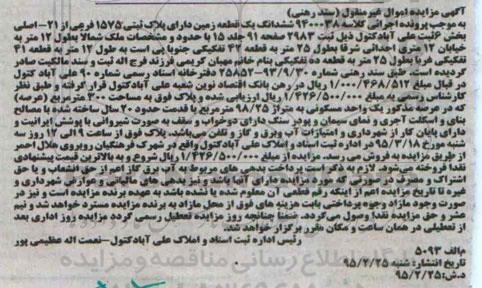 آگهی مزایده اموال غیرمنقول (سند رهنی)
به موجب پرونده اجرائی کلاسه ۹۴۰۰۰۳۸ ششدانگ یک قطعه زمین دارای پلاک ثبتی ۱۵۷۵ فرعی از ۲۱ - اصلی
بخش ۶ ثبت علی آبادکتول ذیل ثبت ۲۹۸۳ صفحه ۹۱ جلد ۱۵ با حدود و مشخصات ملک شمالا بطول ۱۲ متر به
خیابان ۱۲ متری احداثی شرقا بطول ۲۵ متر به قطعه ۴۲ تفکیکی جنوبا پی است به طول ۱۲ متر به قطعه ۴۱
تفکیکی غربا بطول ۲۵ متر به قطعه ده تفکیکی بنام خانم مهبان کریمی فرزند فرج اله ثبت و سند مالکیت صادر
گردیده است. طبق سند رهنی شماره ۲۵۸۵۲-۹۳/۹/۳۰ دفترخانه اسناد رسمی شماره ۹۰ علی آباد کتول
در قبال مبلغ ۱/۰۰۰/۴۶۸/۵۱۲ ریال در رهن بانک اقتصاد نوین شعبه علی آبادکتول قرار گرفته و طبق نظر
کارشناس رسمی به مبلغ ۱/۴۲۶/۵۰۰/۰۰۰ ریال ارزیابی شده و پلاک فوق به مساحت ۳۰۰ مترمربع (عرصه)
که در عرصه مذکور یک واحد مسکونی به متراژ ۹۸/۲۵ متر مربع با قدمت حدود ۲۰ سال ساخته شده با مصالح
بنای و اسکلت آجری و نمای سیمان و پودر سنگ دارای دوخواب و سقف به صورت شیروانی با پوشش ایرانیت و
دارای پایان کار از شهرداری و امتیازات آب وبرق و گاز و تلفن می‌باشد. پلاک فوق از ساعت ۹ الی ۱۲ روز سه
شنبه مورخ ۹۵/۳/۱۸ در اداره ثبت اسناد و املاک علی آبادکتول واقع در شهرک فرهنگیان روبروی هلال احمر
از طریق مزایده به فروش می رسد. مزایده از مبلغ ۱/۴۲۶/۵۰۰/۰۰۰ ریال شروع و به بالاترین قیمت پیشنهادی
نقدا فروخته میشود. لازم به ذکر است پرداخت بدهی های مربوط به آب برق گاز اعم از حق انشعاب و یا حق
اشتراک و مصرف در صورتی که مورد مزایده دارای آنها باشد و نیز بدهی های مالیاتی و عوارض شهرداری و
غیره تا تاریخ مزایده اعم از اینکه رقم قطعی آن معلوم شده یا نشده باشد به عهده برنده مزایده است و نیز در
صورت وجود مازاد وجوه پرداختی بابت هزینه های فوق از محل مازاد به برنده مزایده مسترد خواهد شد و نیم
عشر و حق مزایده نقدا وصول می‌گردد. ضمنا چنانچه روز مزایده تعطیل رسمی گردد مزایده روز اداری بعد
از تعطیلی در همان ساعت و مکان مقرر برگزار خواهد شد.
رئیس اداره ثبت اسناد و املاک علی آبادکتول-نعمت اله عظیمی پور
م الف ۵۰۹۳
تاریخ انتشار: شنبه ۹۵/۲/۲۵
د.ش: ۹۵/۲/۲۵